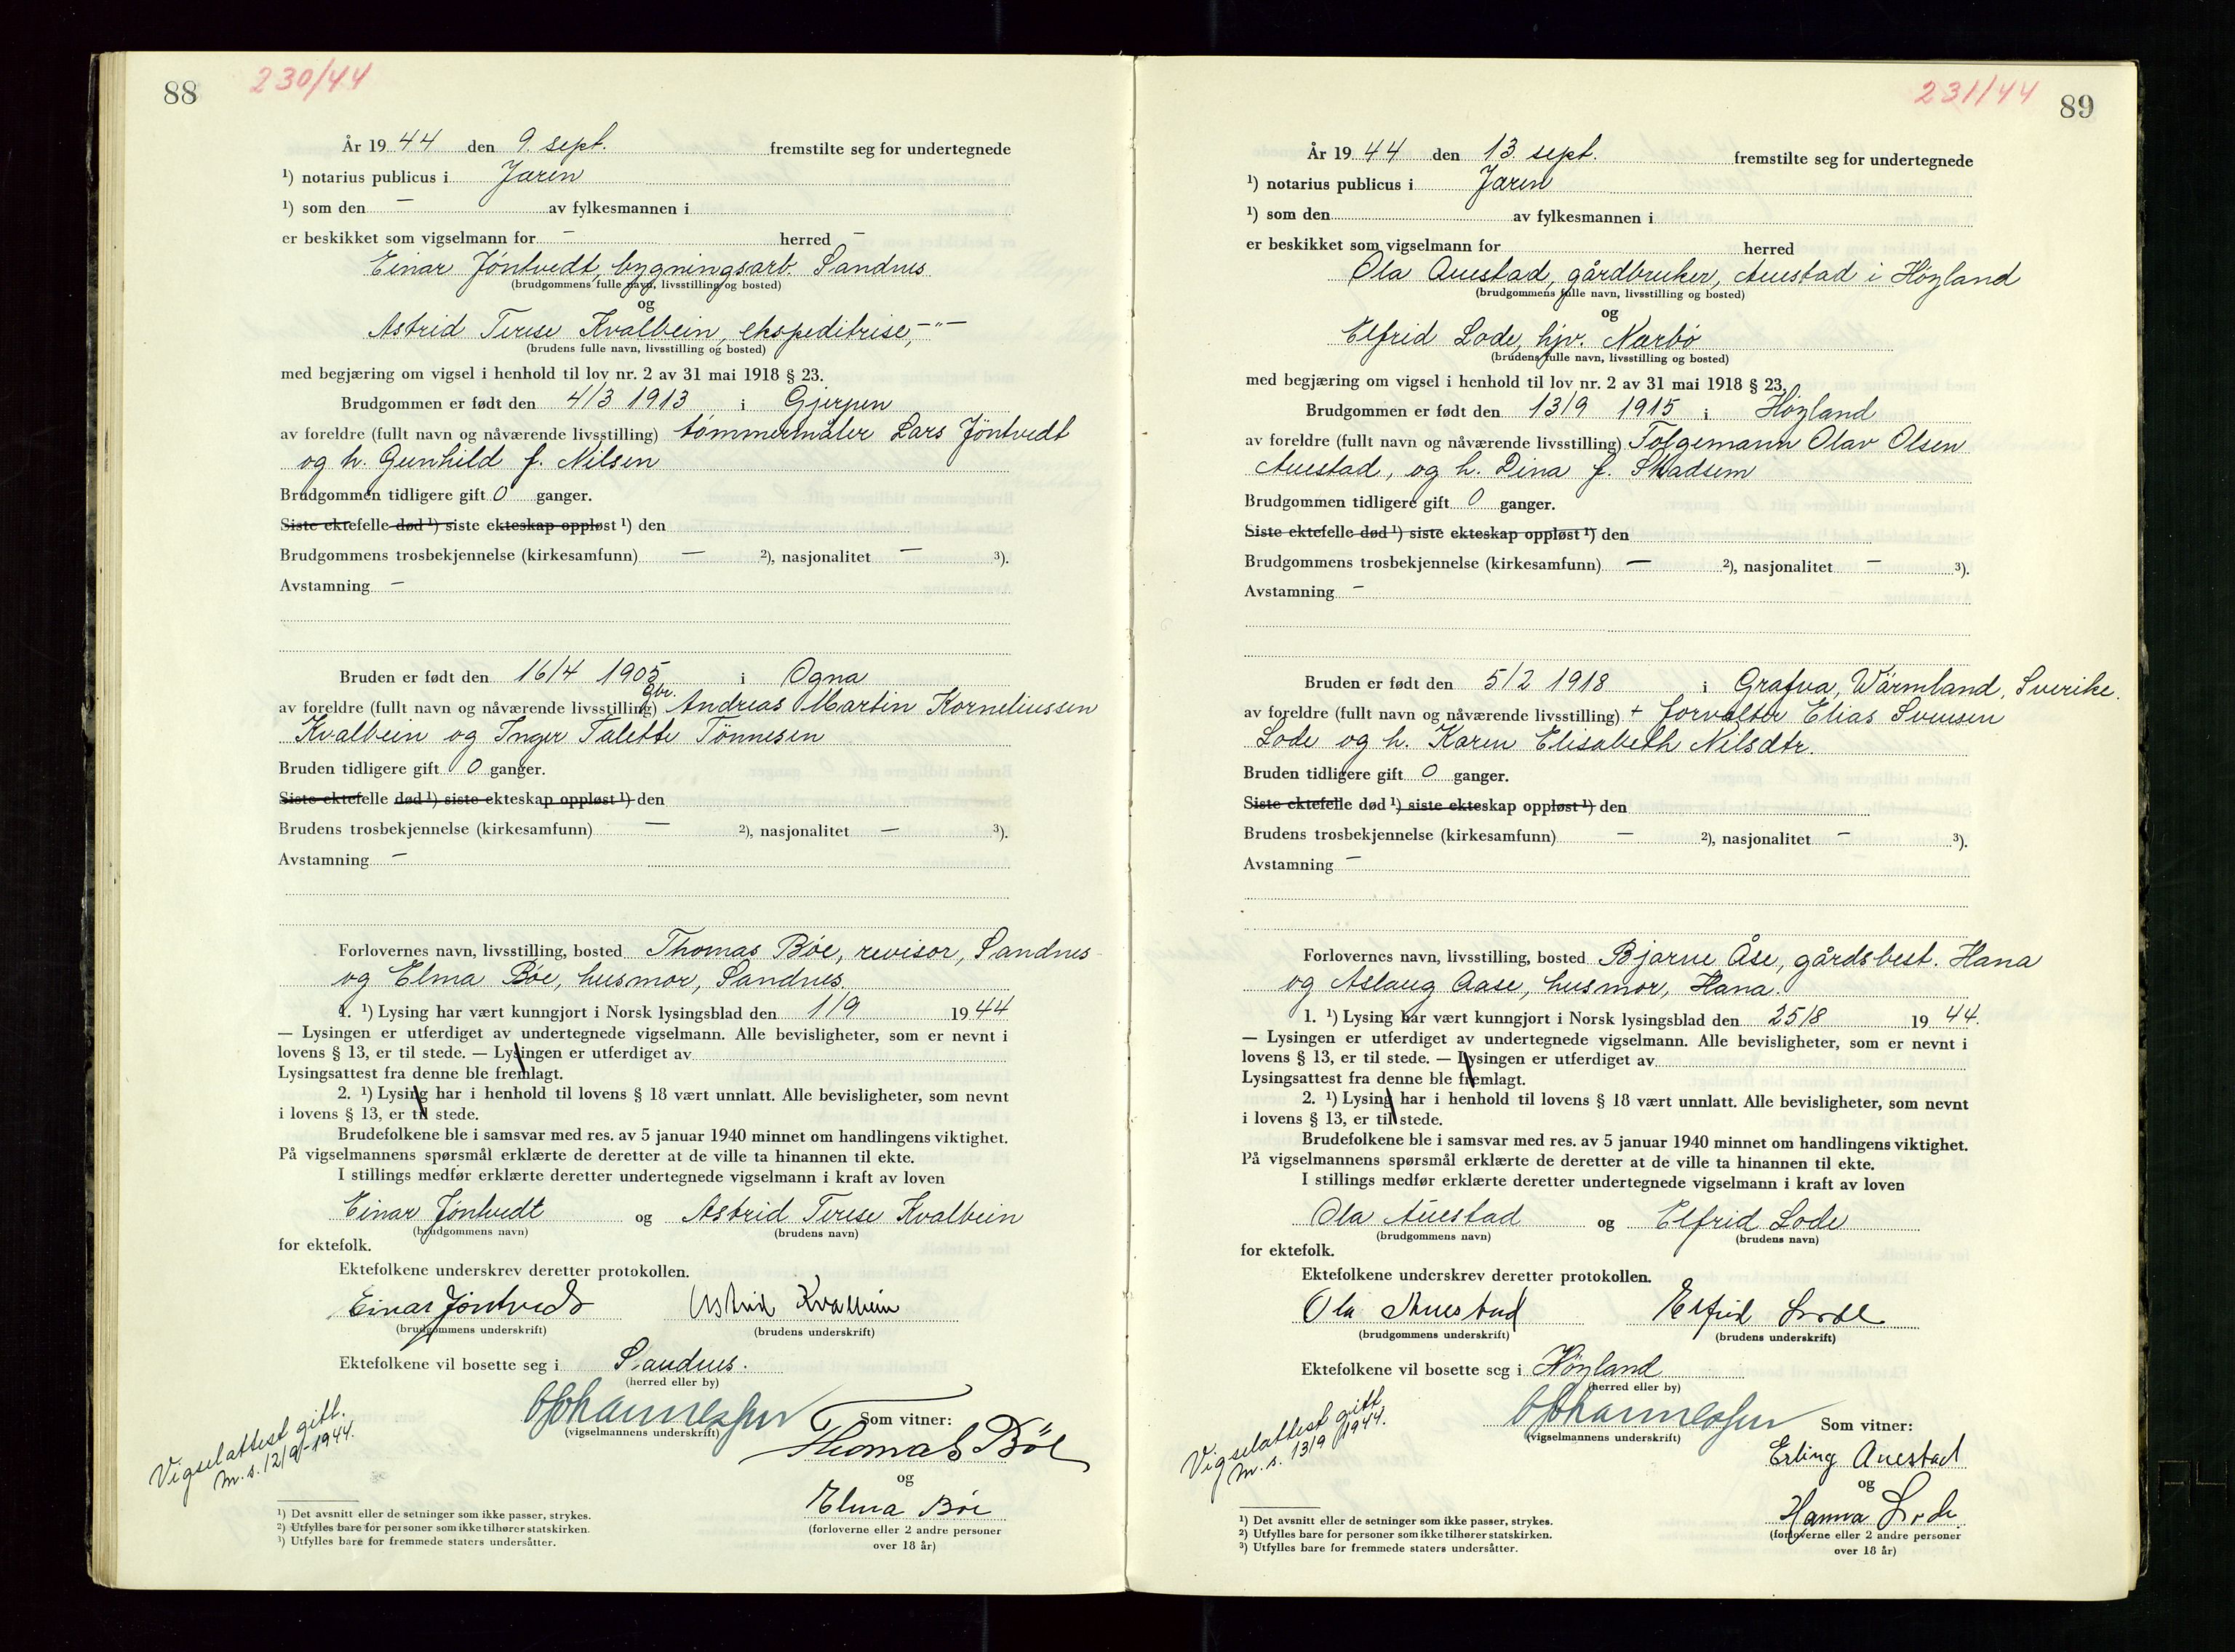 88 230/44
År 19 44 den 9. sept. fremstilte seg for undertegnede
¹) notarius publicus i Jæren
¹) som den — av fylkesmannen i
er beskikket som vigselmann for — herred —
Einar Jöntvedt, bygningsarb. Sandnes
(brudgommens fulle navn, livsstilling og bosted)
og
Astrid Terese Kvalbein, ekspeditrise, —"—
(brudens fulle navn, livsstilling og bosted)
med begjæring om vigsel i henhold til lov nr. 2 av 31 mai 1918 § 23.
Brudgommen er født den 4/3 1913 i Gjerpen
av foreldre (fullt navn og nåværende livsstilling) tømmermåler Lars Jöntvedt
og h. Gunhild f. Nilsen
Brudgommen tidligere gift 0 ganger.
Siste ektefelle død ¹) siste ekteskap oppløst ¹) den
Brudgommens trosbekjennelse (kirkesamfunn) — ²), nasjonalitet — ³).
Avstamning —
Bruden er født den 16/4 1905 i Ogna
av foreldre (fullt navn og nåværende livsstilling) gbr. Andreas Martin Korneliussen
Kvalbein og Inger Talette Tönnesen
Bruden tidligere gift 0 ganger.
Siste ektefelle død ¹) siste ekteskap oppløst ¹) den
Brudens trosbekjennelse (kirkesamfunn) — ²), nasjonalitet — ³).
Avstamning —
Forlovernes navn, livsstilling, bosted Thomas Böe, revisor, Sandnes
og Elma Böe, husmor, Sandnes.
1. ¹) Lysing har vært kunngjort i Norsk lysingsblad den 1/9 19 44
— Lysingen er utferdiget av undertegnede vigselmann. Alle bevisligheter, som er nevnt i
lovens § 13, er til stede. — Lysingen er utferdiget av
Lysingsattest fra denne ble fremlagt.
2. ¹) Lysing har i henhold til lovens § 18 vært unnlatt. Alle bevisligheter, som nevnt
i lovens § 13, er til stede.
Brudefolkene ble i samsvar med res. av 5 januar 1940 minnet om handlingens viktighet.
På vigselmannens spørsmål erklærte de deretter at de ville ta hinannen til ekte.
I stillings medfør erklærte deretter undertegnede vigselmann i kraft av loven
Einar Jöntvedt og Astrid Terese Kvalbein
(brudgommens navn) (brudens navn)
for ektefolk.
Ektefolkene underskrev deretter protokollen.
Einar Jöntvedt Astrid Kvalbein
(brudgommens underskrift) (brudens underskrift)
Ektefolkene vil bosette seg i Sandnes.
(herred eller by)
Johannessen Som vitner:
(vigselmannens underskrift)
Thomas Böe
og
Elma Böe
(forloverne eller 2 andre personer
over 18 år)
Vigselattest gitt.
m. s. 12/9-1944.
¹) Det avsnitt eller de setninger som ikke passer, strykes.
²) Utfylles bare for personer som ikke tilhører statskirken.
³) Utfylles bare for fremmede staters undersåtter.
231/44 89
År 19 44 den 13. sept. fremstilte seg for undertegnede
¹) notarius publicus i Jæren
¹) som den av fylkesmannen i
er beskikket som vigselmann for herred
Ola Auestad, gårdbruker, Auestad i Höyland
(brudgommens fulle navn, livsstilling og bosted)
og
Elfrid Lode, hjv. Nærbö
(brudens fulle navn, livsstilling og bosted)
med begjæring om vigsel i henhold til lov nr. 2 av 31 mai 1918 § 23.
Brudgommen er født den 13/9 1915 i Höyland
av foreldre (fullt navn og nåværende livsstilling) Folgemann Olav Olsen
Auestad, og h. Dina f. Skadsem
Brudgommen tidligere gift 0 ganger.
Siste ektefelle død ¹) siste ekteskap oppløst ¹) den
Brudgommens trosbekjennelse (kirkesamfunn) — ²), nasjonalitet — ³).
Avstamning —
Bruden er født den 5/2 1918 i Grafva, Wärmland, Sverike.
av foreldre (fullt navn og nåværende livsstilling) + forvalter Elias Svensen
Lode og h. Karen Elisabeth Nilsdtr.
Bruden tidligere gift 0 ganger.
Siste ektefelle død ¹) siste ekteskap oppløst ¹) den
Brudens trosbekjennelse (kirkesamfunn) — ²), nasjonalitet — ³).
Avstamning —
Forlovernes navn, livsstilling, bosted Bjarne Åse, gårdsbest. Hana
og Aslaug Aase, husmor, Hana.
1. ¹) Lysing har vært kunngjort i Norsk lysingsblad den 25/8 19 44.
— Lysingen er utferdiget av undertegnede vigselmann. Alle bevisligheter, som er nevnt i
lovens § 13, er til stede. — Lysingen er utferdiget av
Lysingsattest fra denne ble fremlagt.
2. ¹) Lysing har i henhold til lovens § 18 vært unnlatt. Alle bevisligheter, som nevnt
i lovens § 13, er til stede.
Brudefolkene ble i samsvar med res. av 5 januar 1940 minnet om handlingens viktighet.
På vigselmannens spørsmål erklærte de deretter at de ville ta hinannen til ekte.
I stillings medfør erklærte deretter undertegnede vigselmann i kraft av loven
Ola Auestad og Elfrid Lode
(brudgommens navn) (brudens navn)
for ektefolk.
Ektefolkene underskrev deretter protokollen.
Ola Auestad Elfrid Lode
(brudgommens underskrift) (brudens underskrift)
Ektefolkene vil bosette seg i Höyland
(herred eller by)
Johannessen Som vitner:
(vigselmannens underskrift)
Erling Auestad
og
Hanna Lode.
(forloverne eller 2 andre personer
over 18 år)
Vigselattest gitt
m. s. 13/9 1944.
¹) Det avsnitt eller de setninger som ikke passer, strykes.
²) Utfylles bare for personer som ikke tilhører statskirken.
³) Utfylles bare for fremmede staters undersåtter.